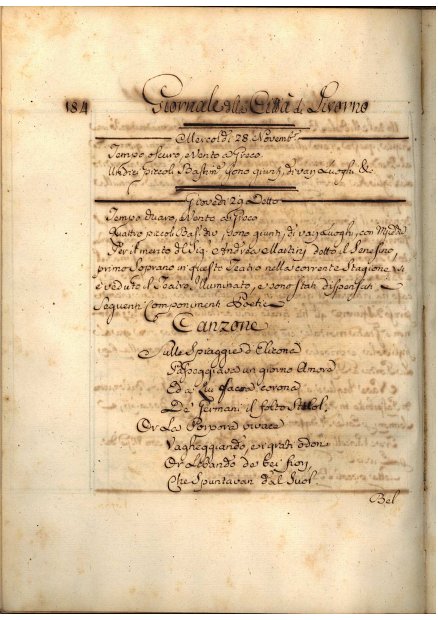 184 Giornale della Città di Livorno
Mercoldì 28 Novembre
Tempo oscuro, e Vento a Greco.
Undici piccoli Bastim.ti sono giunti, di varj Luoghi &c
Giovedì 29 Detto
Tempo chiaro, e Vento a Greco
Quattro piccoli Bast. sono giunti, di varj Luoghi, con
Per il merito del Sig.r Andrea Martinj detto il Senesino,
primo Soprano in questo Teatro nella corrente Stagione, si
è veduto il Teatro Illuminato, e sono stati dispensati
Seguenti Componimenti Poetici
Canzone
Sulle Spiaggie d'
Passeggiava un giorno Amore
Ed a Lui facea corona
De' Germani il folto Stuol,
Or La Porpora vivace
Vagheggiando, e i grati odori
Or Libando da bei fiori
Che Spuntavan dal Suol.
Bel